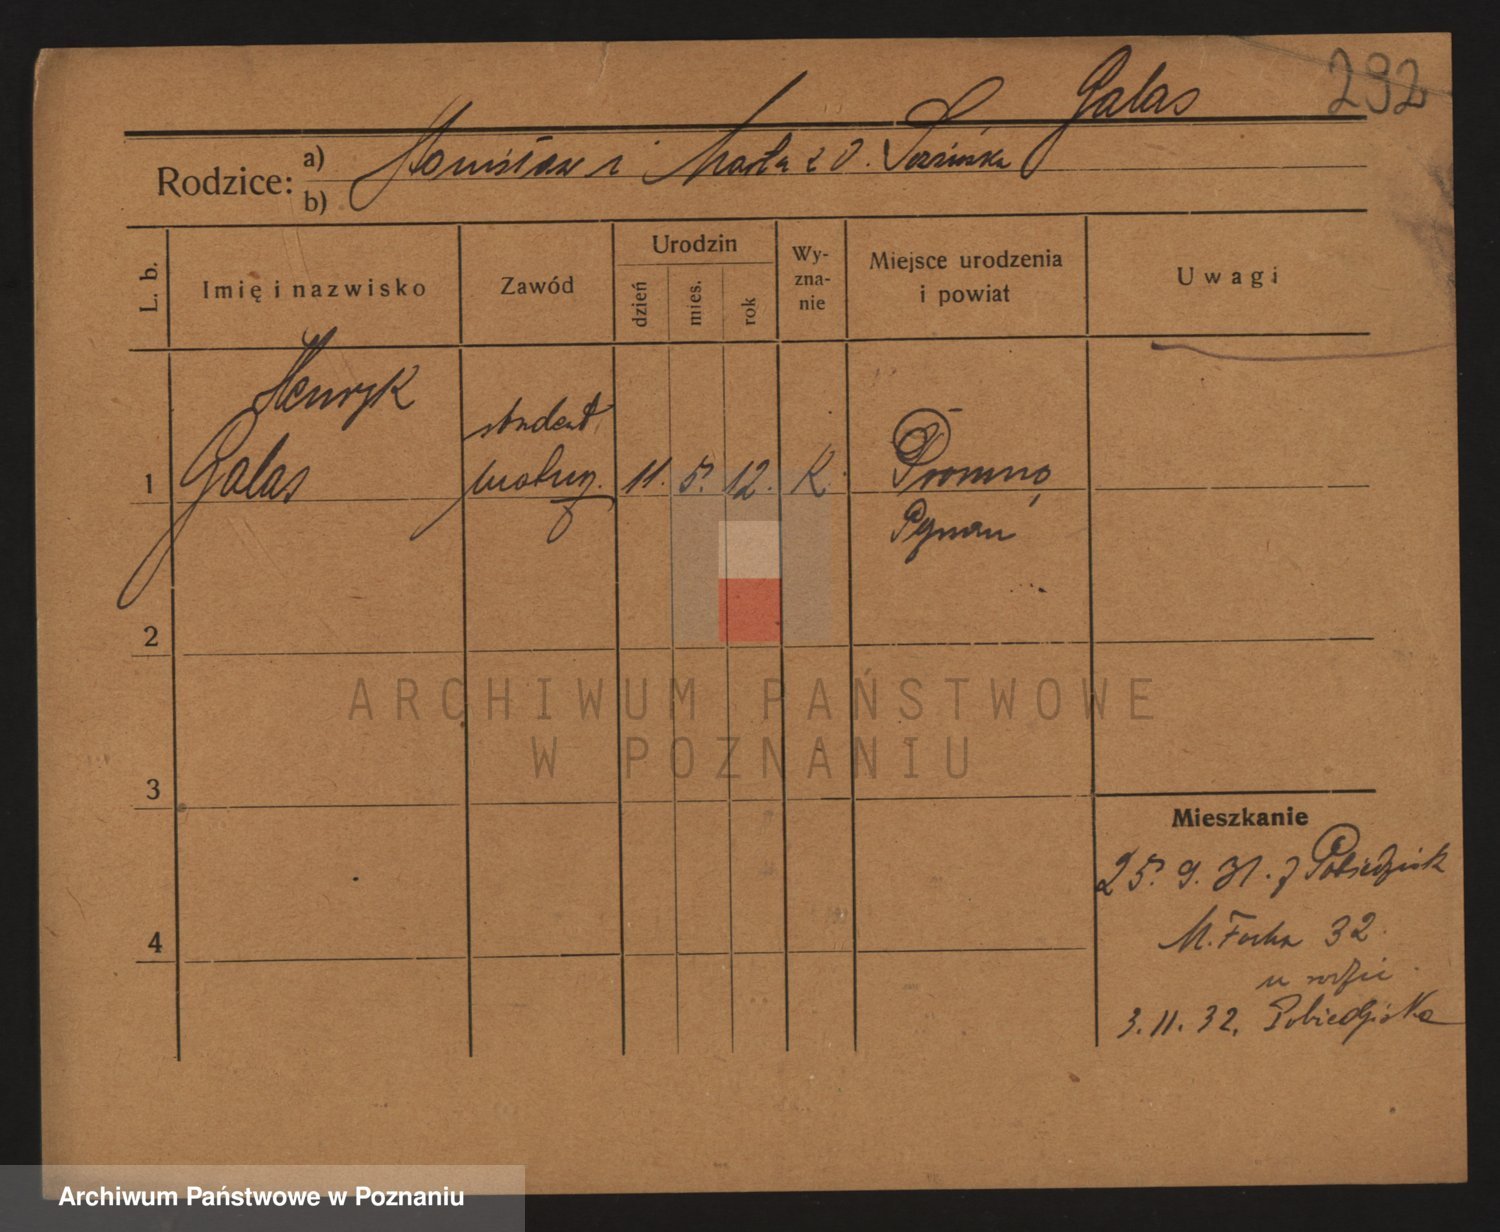 292
Galas
Rodzice: a) Stanisław i Marta z d.
b)
L. b.
Imię i nazwisko
Zawód
Urodzin
dzień
mies.
rok
Wy-
zna-
nie
Miejsce urodzenia
i powiat
Uwagi
Henryk
Galas
student
11. 5. 12. K.
Promno
1
2
3
4
ARCHIWUM PAŃSTWOWE
W POZNANIU
Mieszkanie
25. 9. 31. z Pobiedzisk
M. Focha 32
u rodzic.
3. 11. 32. Pobiedziska
Archiwum Państwowe w Poznaniu